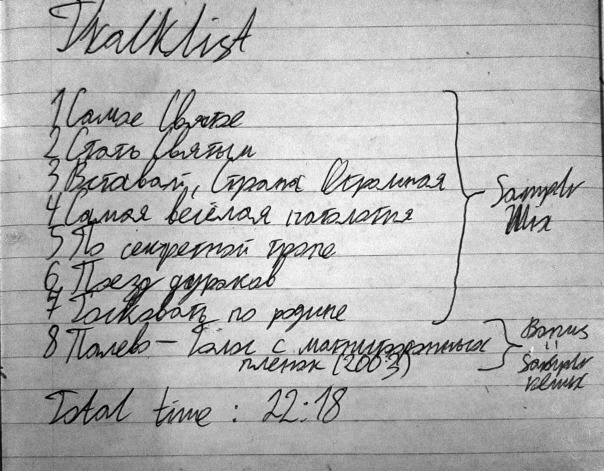 Tracklist
1 Самое Святое
2 Стать Святым
3 Вставай, Страна Огромная
4 Самая весёлая
5 По секретной тропе
6 Поезд дураков
7 Тосковать по родине
8 Палево — Голос с магнитофонных
пленок (2003)
Sampler
Mix
Bonus
Sampler
Total time : 22:18